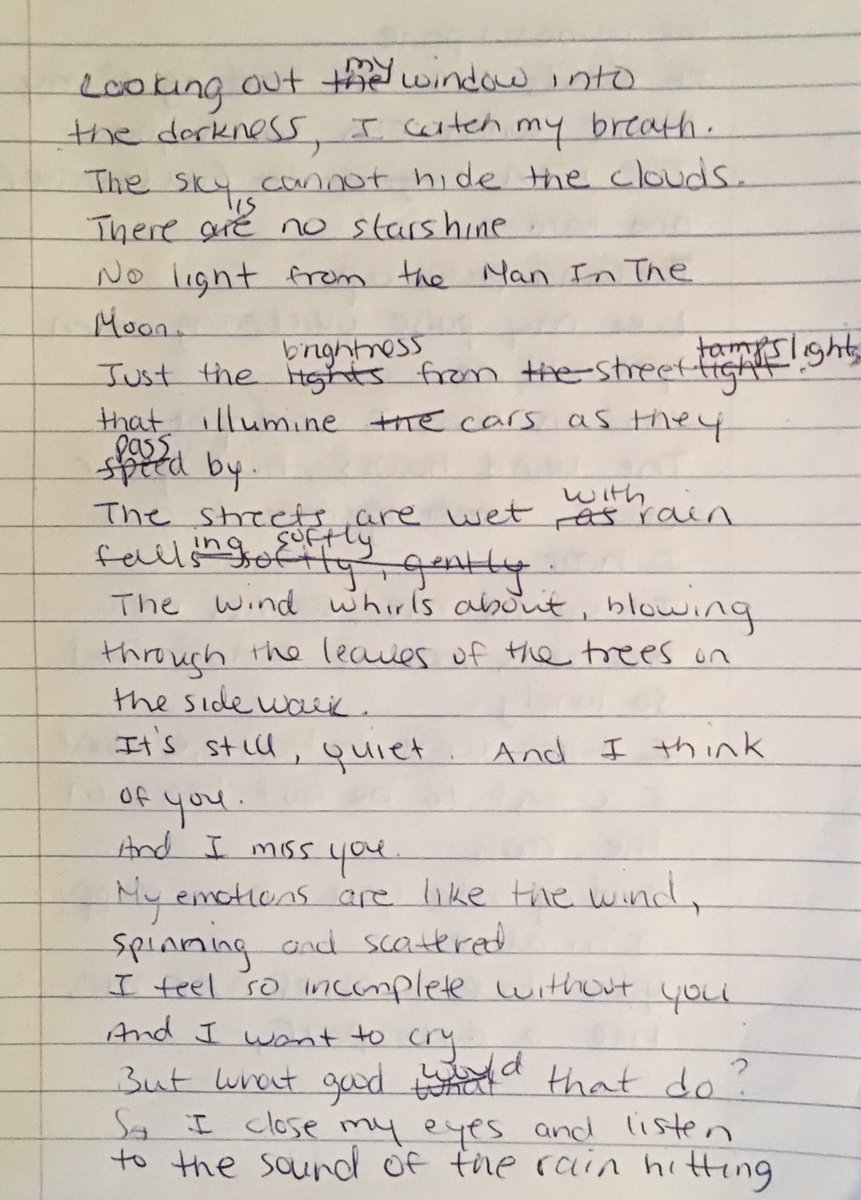 Looking out ~~the~~ my window into
the darkness, I catch my breath.
The sky cannot hide the clouds.
There ~~are~~ is no starshine
No light from the Man In The
Moon.
Just the ~~lights~~ brightness from ~~the~~ street ~~light~~ ~~lamps~~ lights.
that illumine ~~the~~ cars as they
~~speed~~ pass by.
The streets are wet ~~, as~~ with rain
~~falls~~ ing ~~softly, gently~~ softly.
The wind whirls about, blowing
through the leaves of the trees on
the sidewalk.
It's still, quiet. And I think
of you.
And I miss you.
My emotions are like the wind,
spinning and scattered
I feel so incomplete without you
And I want to cry
But what good ~~what~~ would that do?
So I close my eyes and listen
to the sound of the rain hitting